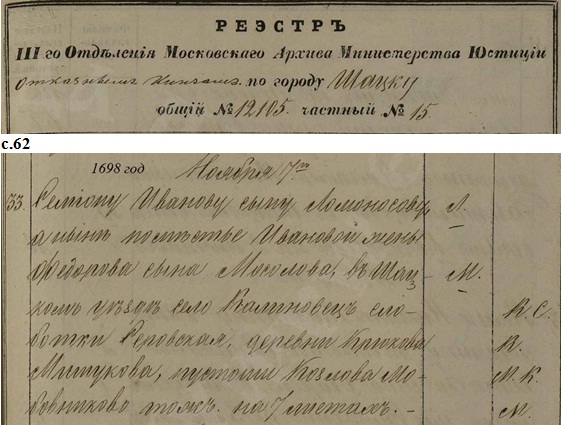 РЕЭСТРЪ
III го Отдѣленія Московскаго Архива Министерства Юстиціи
Отказнымъ книгамъ по городу Шацку
общій № 12105. частный № 15.
с.62
1698 год
Ноября 17го
33. Ивану сыну Ломоносову Л.
а нынѣ помѣстье Ивановой жены
Федорова сына Мосолова, въ Шац- М.
комъ уѣздѣ село Калиновецъ сло- К. С.
ботки деревни Крюкова К.
Митукова, пустоши Козлова Мо- М. К.
тожъ. на 7 листахъ. — М.